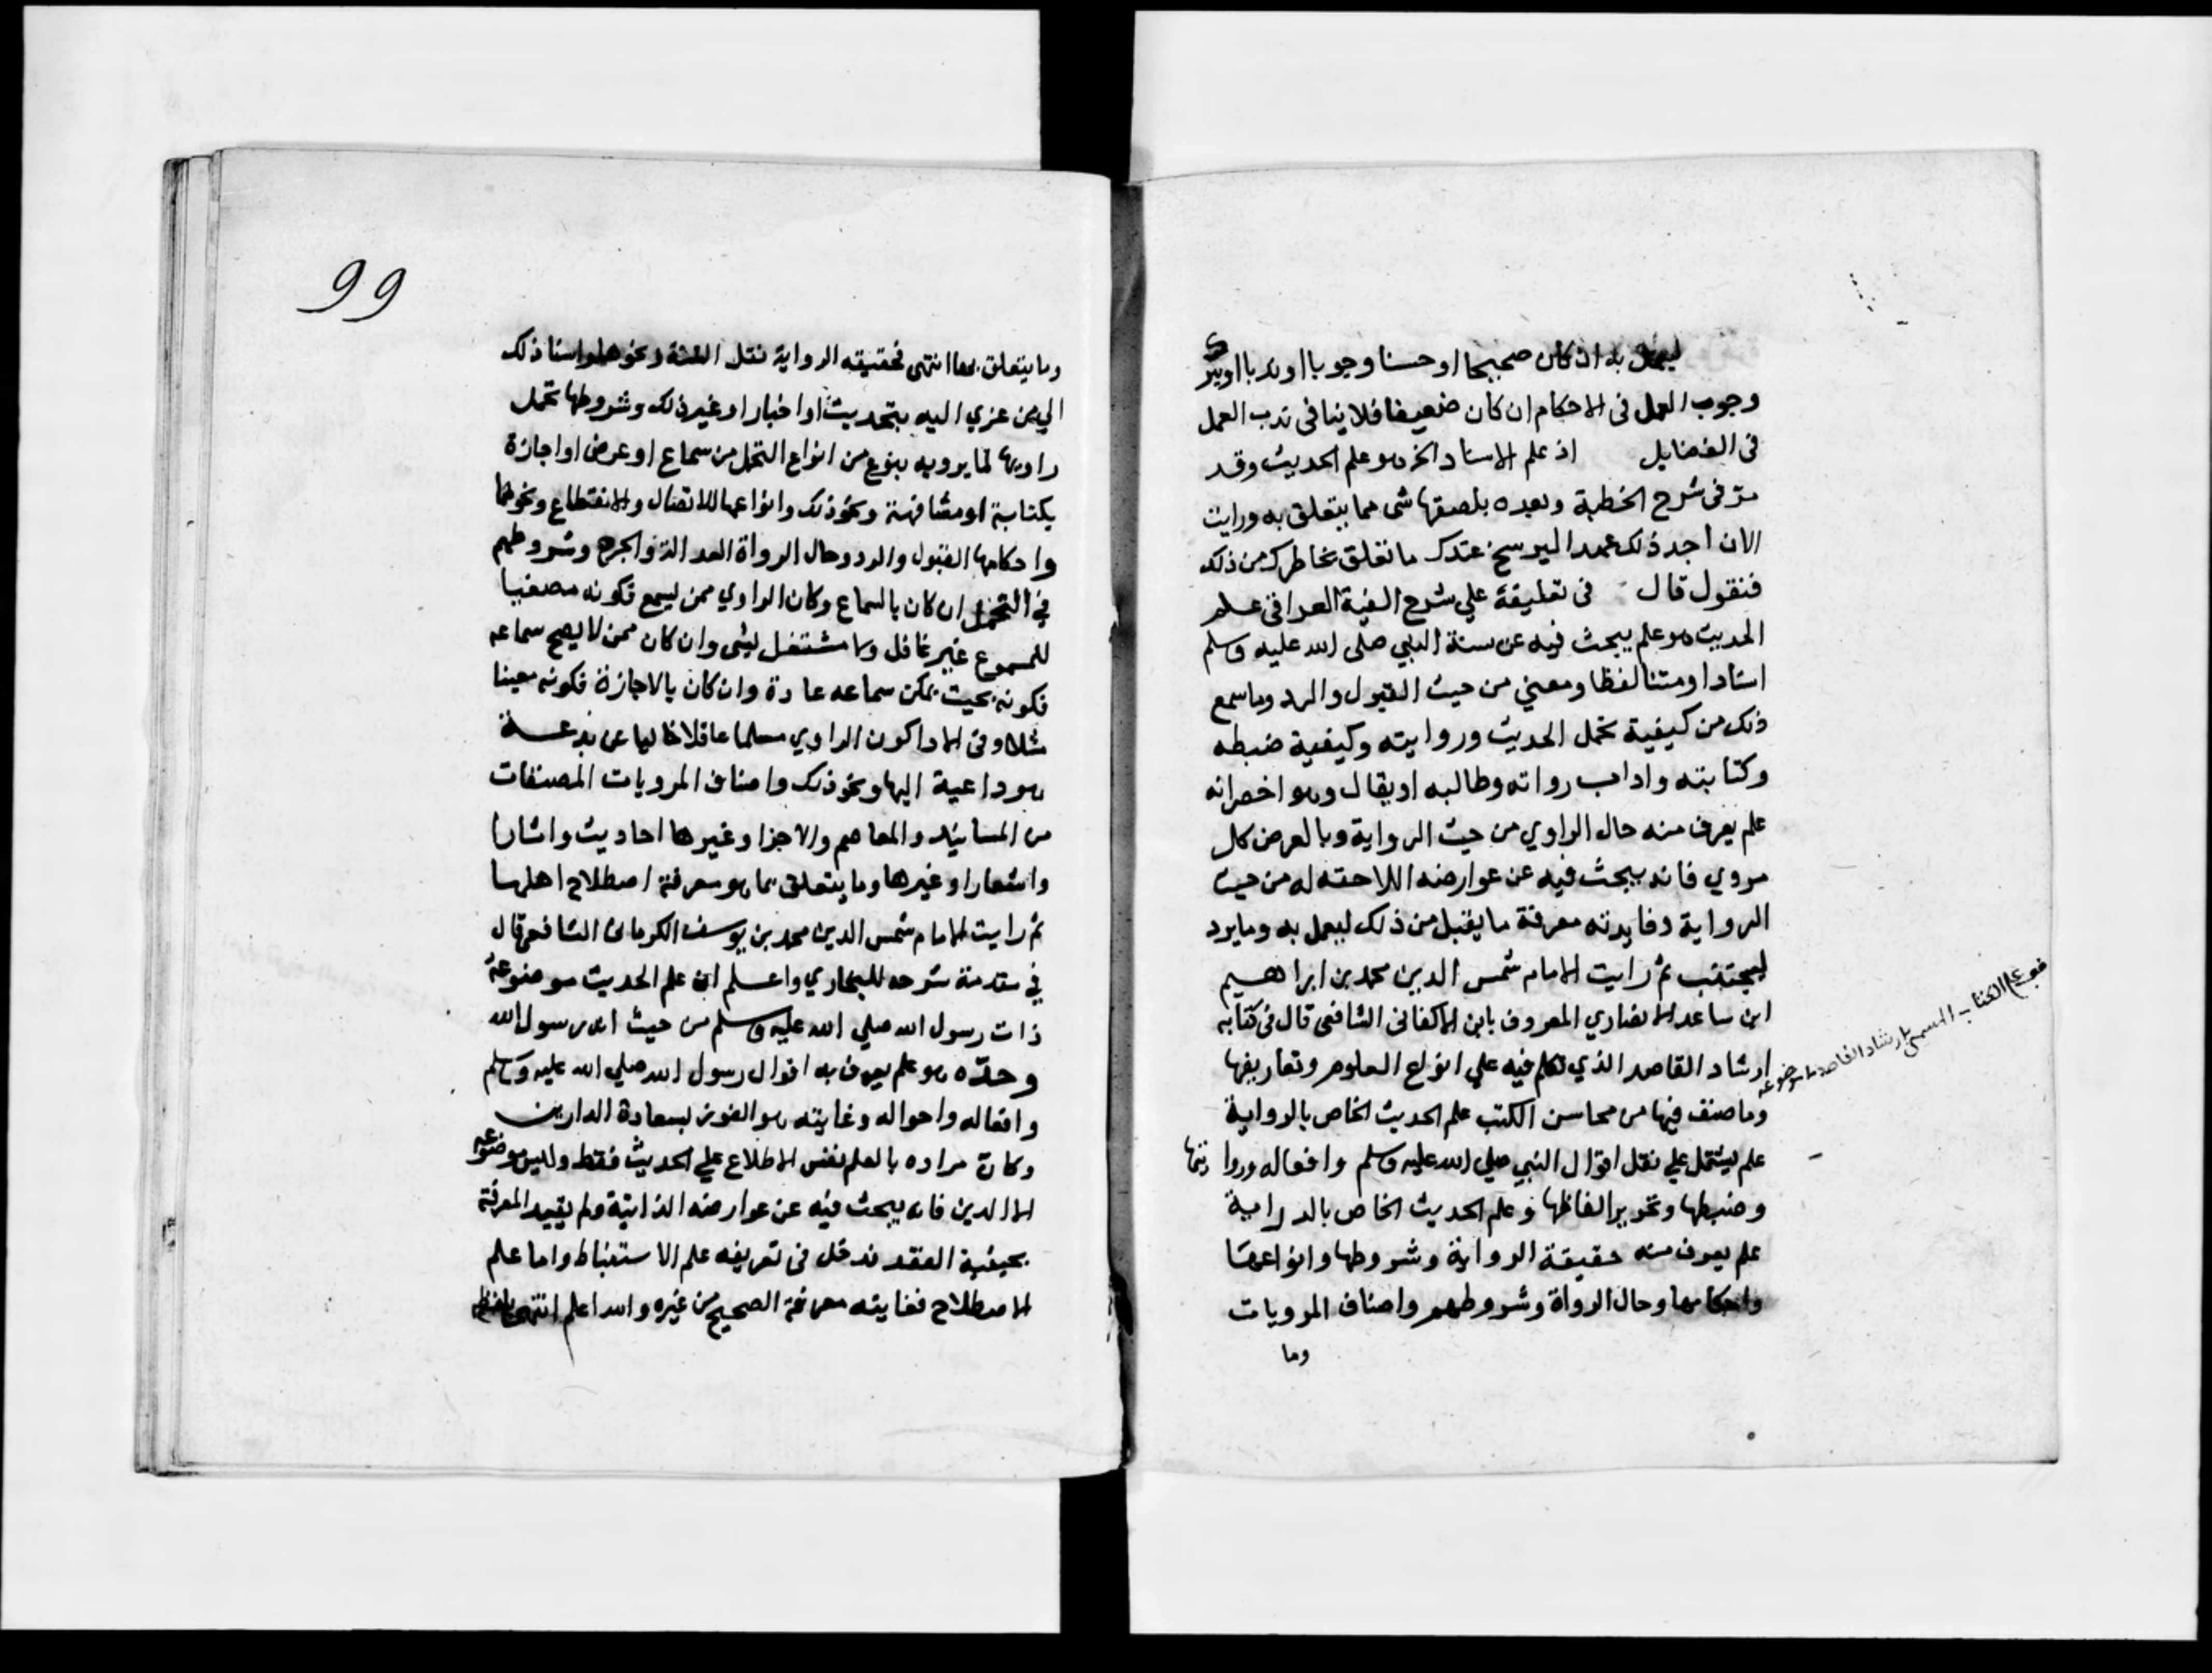 ليعمل به ان كان صحيحا او حسنا وجوبا او ندبا او يترك
وجوب العمل فى الاحكام ان كان ضعيفا فلا ينافى ندب العمل
فى الفضايل اذ علم الاسناد اخره وعلم الحديث وقد
مر فى شرح الخطبة وبعده بلصقها شى مما يتعلق به ورايت
الان اجد ذلك عمدا ليرسخ عندك ما تعلق بخاطرك من ذلك
فنقول قال فى تعليقة علي شرح الفية العراقى علم
الحديث هو علم يبحث فيه عن سنة النبي صلى الله عليه وسلم
اسنادا ومتنا لفظا ومعني من حيث القبول والرد وما سمع
ذلك من كيفية تحمل الحديث وروايته وكيفية ضبطه
وكتابته واداب رواته وطالبه او يقال وهو اخصر انه
علم يعرف منه حال الراوي من حيث الرواية وبالعرض كل
مروي فانه يبحث فيه عن عوارضه اللاحقه له من حيث
الرواية وفايدته معرفة ما يقبل من ذلك ليعمل به وما يرد
ليجتنب ثم رايت الامام شمس الدين محمد بن ابراهيم
ابن ساعد الانصاري المعروف بابن الاكفانى الشافعى قال فى كتابه
ارشاد القاصد الذي تكلم فيه علي انواع العلوم وتعاريفها
وما صنف فيها من محاسن الكتب علم الحديث الخاص بالرواية
علم يشتمل علي نقل اقوال النبي صلي الله عليه وسلم وافعاله وروايتها
وضبطها وتحرير الفاظها وعلم الحديث الخاص بالدراية
علم يعرف منه حقيقة الرواية وشروطها وانواعها
واحكامها وحال الرواة وشروطهم واصناف المرويات
وما
الكتاب المسمى بارشاد القاصد
99
وما يتعلق بها انتهى فحقيقه الرواية نقل السنة ونحوها واسناد ذلك
الي من عزي اليه بتحديث او اخبار او غير ذلك وشروطها تحمل
راويها لما يرويه بنوع من انواع التحمل من سماع او عرض او اجازة
بكتابة او مشافهة ونحو ذلك وانواعها الاتصال والانقطاع ونحوهما
واحكامها القبول والرد وحال الرواة العدالة والجرح وشروطهم
في التحمل ان كان بالسماع وكان الراوي ممن يسمع فكونه مصغيا
للمسموع غير غافل ولا مشتغل بشى وان كان ممن لا يصح سماعه
فكونه بحيث يمكن سماعه عادة وان كان بالاجازة فكونه معينا
مثلا وفى الادا كون الراوي مسلما عاقلا خاليا عن بدعة
هو داعية اليها ونحو ذلك واصناف المرويات المصنفات
من المسانيد والمعاجم والاجزا وغيرها احاديث واثارا
واشعارا وغيرها وما يتعلق بها هو معرفة اصطلاح اهلها
ثم رايت الامام شمس الدين محمد بن يوسف الكرمانى الشافعي قال
في مقدمة شرحه للبخاري واعلم ان علم الحديث موضوعه
ذات رسول الله صلي الله عليه وسلم من حيث انه رسول الله
وحده هو علم يعرف به اقوال رسول الله صلي الله عليه وسلم
وافعاله واحواله وغايته هو الفوز بسعادة الدارين
وكان مراده بالعلم نفس الاطلاع علي الحديث فقط وليس موضوعه
الا الدين فانه يبحث فيه عن عوارضه الذاتية ولم يقيد المعرفة
بحيثية الفقد ندخل فى تعريفه علم الاستنباط واما علم
الاصطلاح فغايته معرفة الصحيح من غيره والله اعلم انتهى